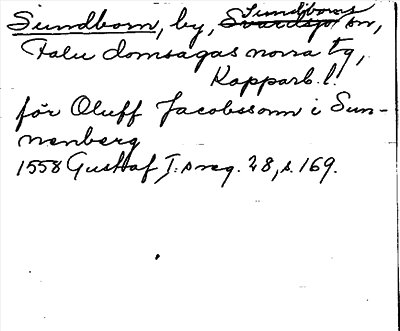 Sundborn, by, Sundborns
Svärdsjö sn,
Falu domsagas norra tg,
Kopparb. l.
för Oluff Jacobssonn i Sun-
nenberg
1558 Gustaf I:s reg. 28, s. 169.